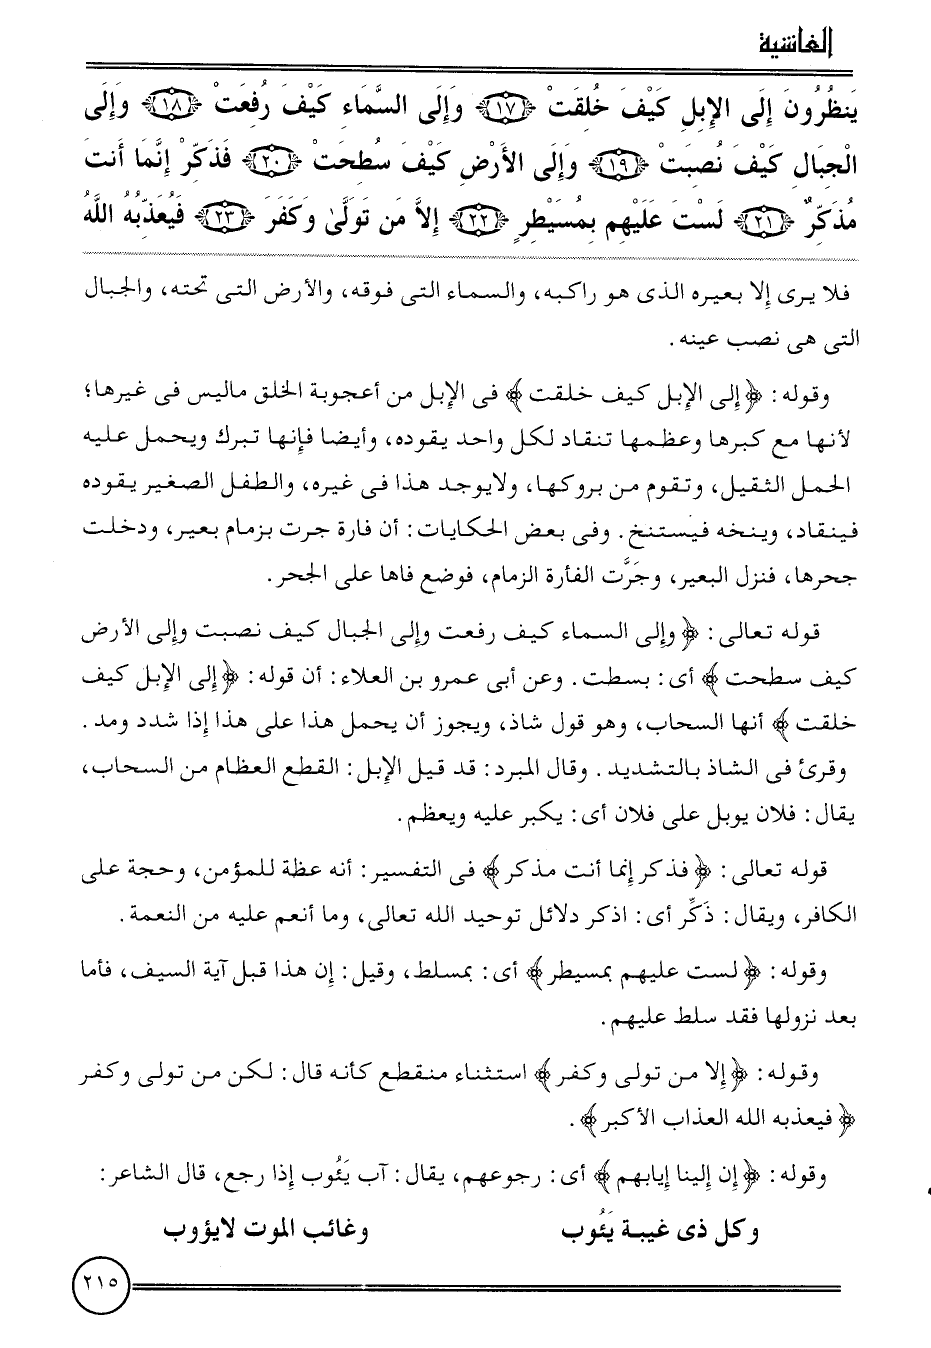 الغاشية
يَنظُرُونَ إِلَى الإِبِلِ كَيْفَ خُلِقَتْ ﴿١٧﴾ وَإِلَى السَّمَاءِ كَيْفَ رُفِعَتْ ﴿١٨﴾ وَإِلَى
الْجِبَالِ كَيْفَ نُصِبَتْ ﴿١٩﴾ وَإِلَى الأَرْضِ كَيْفَ سُطِحَتْ ﴿٢٠﴾ فَذَكِّرْ إِنَّمَا أَنتَ
مُذَكِّرٌ ﴿٢١﴾ لَسْتَ عَلَيْهِم بِمُسَيْطِرٍ ﴿٢٢﴾ إِلاَّ مَن تَوَلَّىٰ وَكَفَرَ ﴿٢٣﴾ فَيُعَذِّبُهُ اللَّهُ
فلا يرى إلا بعيره الذى هو راكبه، والسماء التى فوقه، والأرض التى تحته، والجبال
التى هى نصب عينه.
وقوله: ﴿إلى الإبل كيف خلقت﴾ فى الإبل من أعجوبة الخلق ماليس فى غيرها؛
لأنها مع كبرها وعظمها تنقاد لكل واحد يقوده، وأيضا فإنها تبرك ويحمل عليه
الحمل الثقيل، وتقوم من بروكها، ولايوجد هذا فى غيره، والطفل الصغير يقوده
فينقاد، وينخه فيستنخ. وفى بعض الحكايات: أن فارة جرت بزمام بعير، ودخلت
جحرها، فنزل البعير، وجَرَّت الفأرة الزمام، فوضع فاها على الجحر.
قوله تعالى: ﴿وإلى السماء كيف رفعت وإلى الجبال كيف نصبت وإلى الأرض
كيف سطحت﴾ أى: بسطت. وعن أبى عمرو بن العلاء: أن قوله: ﴿إلى الإبل كيف
خلقت﴾ أنها السحاب، وهو قول شاذ، ويجوز أن يحمل هذا على هذا إذا شدد ومد.
وقرئ فى الشاذ بالتشديد. وقال المبرد: قد قيل الإبل: القطع العظام من السحاب،
يقال: فلان يوبل على فلان أى: يكبر عليه ويعظم.
قوله تعالى: ﴿فذكر إنما أنت مذكر﴾ فى التفسير: أنه عظة للمؤمن، وحجة على
الكافر، ويقال: ذَكِّر أى: اذكر دلائل توحيد الله تعالى، وما أنعم عليه من النعمة.
وقوله: ﴿لست عليهم بمسيطر﴾ أى: بمسلط، وقيل: إن هذا قبل آية السيف، فأما
بعد نزولها فقد سلط عليهم.
وقوله: ﴿إلا من تولى وكفر﴾ استثناء منقطع كأنه قال: لكن من تولى وكفر
﴿فيعذبه الله العذاب الأكبر﴾.
وقوله: ﴿إن إلينا إيابهم﴾ أى: رجوعهم، يقال: آب يَئُوب إذا رجع، قال الشاعر:
وكل ذى غيبة يَئُوب وغائب الموت لايؤوب
٢١٥